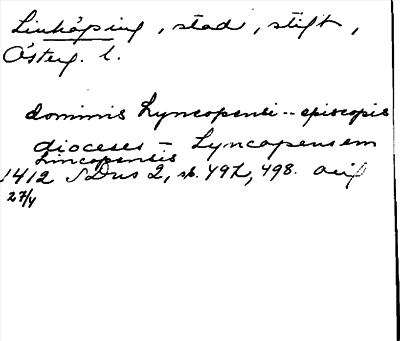 Linköping, stad, stift,
Österg. l.
dominis Lyncopensi -- episcopis
dioceses - Lyncopensem
Lincopensis
1412 SDns 2, sb. 497, 498. avs
27/4